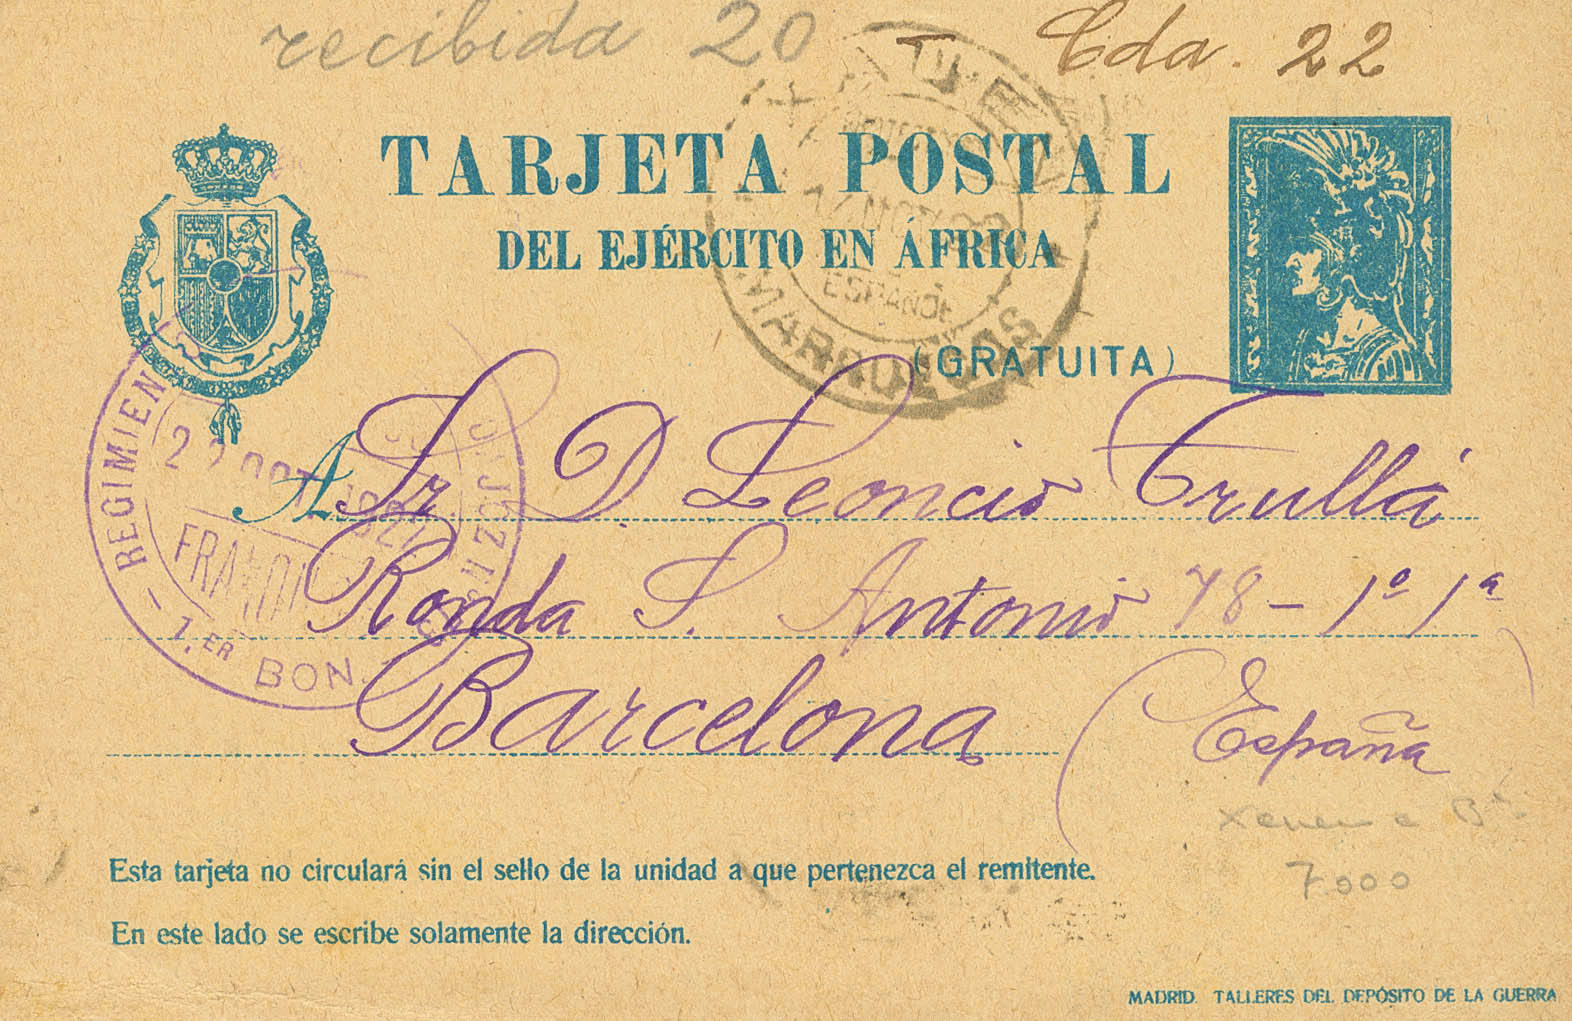 recibida 20 Cda. 22
TARJETA POSTAL
DEL EJÉRCITO EN ÁFRICA
(GRATUITA)
TETUAN
ESPAÑOL
MARRUECOS
A Sr. D. Leoncio Trullá
Ronda S. Antonio 78 - 1º 1ª
Barcelona (España)
REGIMIEN
OCT
FRANQ
1.ER BON.
7000
Esta tarjeta no circulará sin el sello de la unidad a que pertenezca el remitente.
En este lado se escribe solamente la dirección.
MADRID. TALLERES DEL DEPÓSITO DE LA GUERRA